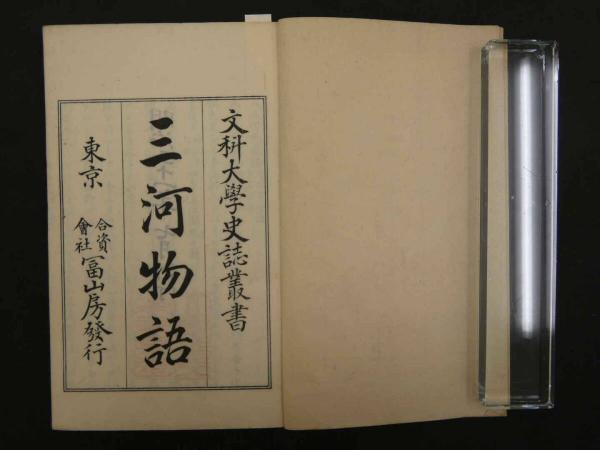 文科大學史誌叢書
三河物語
東京
合資
會社
冨山房發行